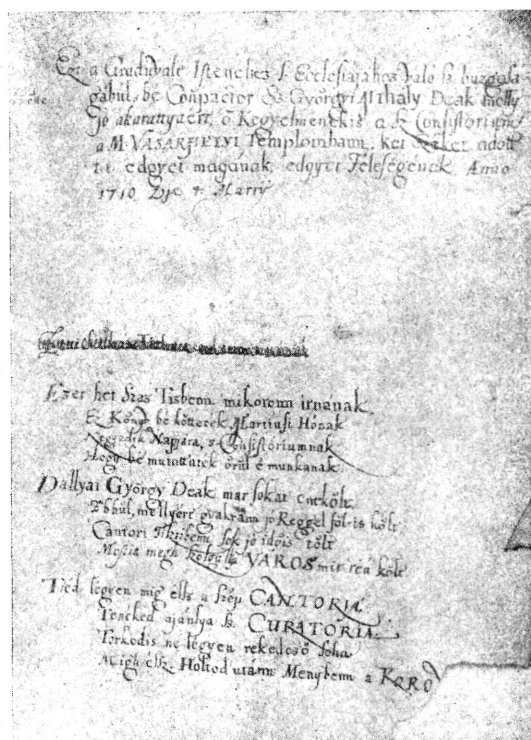 Ezt a Graduale Istenehez s Ecclesiájahoz való sz. buzgosá-
gábul, be Conpactor Sz. Györgyi Mihaly Deak melly
jo akarattyaért, ö Kegyelmenekis a Sz. Consistorium
a M. VASARHELYI Templombann, két széket adott
t.i. edgyet magának, edgyet Feleségenek Anno
1710 Die 4 Marty
Ezer het Szas Tisbenn mikorenn irnanak,
Ez Könyv be köttetek Martiusi Hónak
Negyedik Napjára, s Consistoriumnak
Hogy be mutattatek örül e munkanak
Dallyai György Deak mar sokat enekölt
Ebbül, mellyért gyakrann jo Reggel föl-is költ
Cantori Tisztibenn sok jo idöis tölt
VÁROS mir reá költ
Tied légyen mig élsz a szép CANTORIA
Tenéked ajánlya Sz. CURATORIA
Torkodis ne légyen rekedesö soha
Migh élsz, Holtod utánn Menybenn a KARO